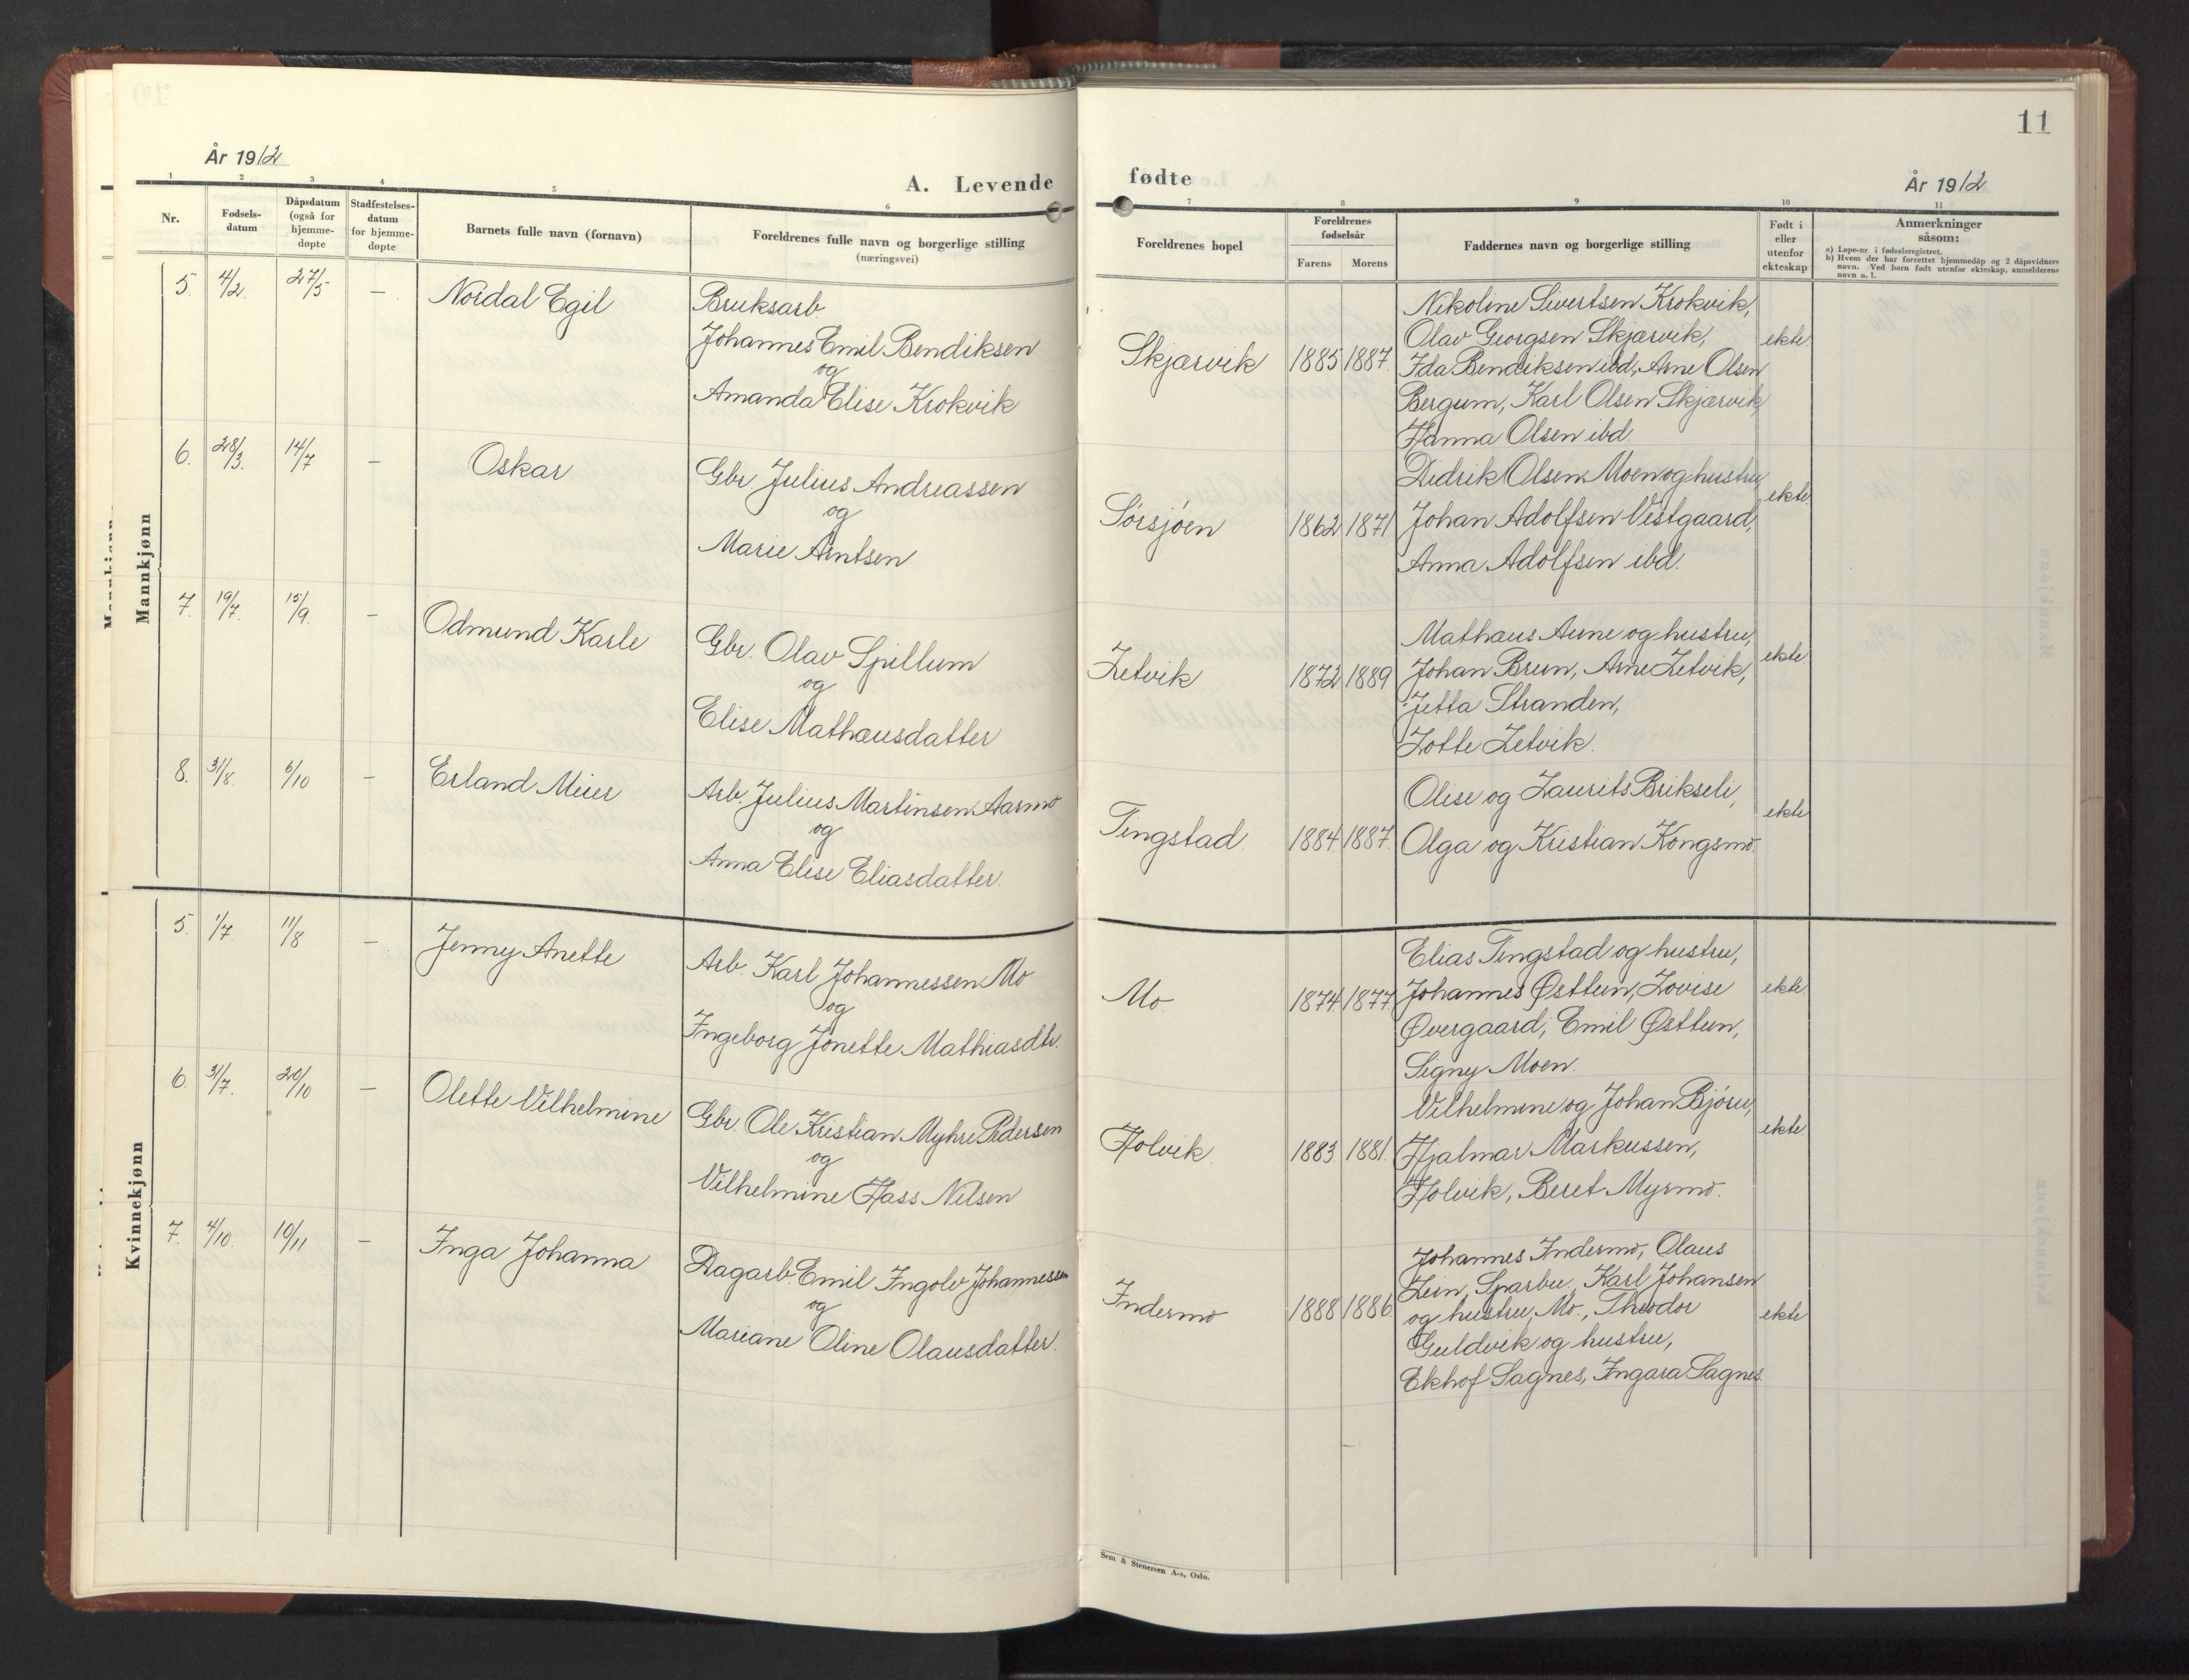 11
År 1912
A. Levende fødte
År 1912
1 2 3 4 5 6 7 8 9 10 11
Nr.
Fødsels-
datum
Dåpsdatum
(også for
hjemme-
døpte
Stadfestelses-
datum
for hjemme-
døpte
Barnets fulle navn (fornavn)
Foreldrenes fulle navn og borgerlige stilling
(næringsvei)
Foreldrenes bopel
Foreldrenes
fødselsår
Farens Morens
Faddernes navn og borgerlige stilling
Født i
eller
utenfor
ekteskap
Anmerkninger
såsom:
a) Løpe-nr. i fødselsregistret.
b) Hvem der har forrettet hjemmedåp og 2 dåpsvidners
navn. Ved barn født utenfor ekteskap, anmelderens
navn o. l.
Mannkjønn
5. 4/2. 27/5 — Nordal Egil
Bruksarb.
Johannes Emil Bendiksen
og
Amanda Elise Krokvik
Skjærvik 1885 1887.
Nikoline Sivertsen Krokvik,
Olav Georgsen Skjærvik,
Ida Bendiksen ibd, Arne Olsen
Bergum, Karl Olsen Skjærvik,
Hanna Olsen ibd.
ekte.
6. 28/3. 14/7 — Oskar
Gbr. Julius Andreassen
og
Marie Arntsen
Sørsjøen 1862 1871
Didrik Olsen Moen og hustru,
Johan Adolfsen Vestgaard,
Anna Adolfsen ibd.
ekte
7. 19/7. 15/9. — Odmund Karle
Gbr. Olav Spillum
og
Elise Mathæusdatter
Letvik 1872 1889
Mathæus Aune og hustru,
Johan Brun, Arne Letvik,
Jetta Stranden,
Lotte Letvik.
ekte
8. 31/8. 6/10 — Erland Meier
Arb. Julius Martinsen Aarmo
og
Anna Elise Eliasdatter.
Tingstad. 1884. 1887.
Olise og Laurits Brikseli,
Olga og Kristian Kongsmo.
ekte
Kvinnekjønn
5. 1/7 11/8 — Jenny Anette
Arb. Karl Johannessen Mo
og
Ingeborg Jonette Mathiasdtr.
Mo 1874. 1877.
Elias Tingstad og hustru,
Johannes Østtun, Lovise
Øvergaard, Emil Østtun,
Signy Moen.
ekte.
6. 31/7. 20/10 — Olette Vilhelmine
Gbr. Ole Kristian Myhre Pedersen
og
Vilhelmine Hass Nilsen
Holvik. 1883. 1881.
Vilhelmine og Johan Bjøru,
Hjalmar Markussen,
Holvik, Beret Myrmo.
ekte.
7. 4/10. 10/11 — Inga Johanna
Dagarb. Emil Ingolv Johannessen
og
Mariane Oline Olausdatter.
Indermo 1888 1886.
Johannes Indermo, Olaus
Lein, Sparbu, Karl Johansen
og hustru, Mo., Theodor
Guldvik og hustru,
Ekhof Sagnes, Ingara Sagnes.
ekte
Sem & Stenersen A-s, Oslo.